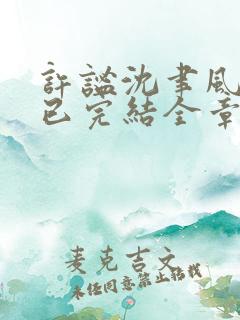 許謐沈聿風
已完結全章
麦克吉文
未任同意禁止轉載